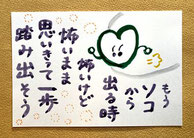 もう
ソコ
から
出る時
怖いけど
怖いまま
思いきって一歩
踏み出そう